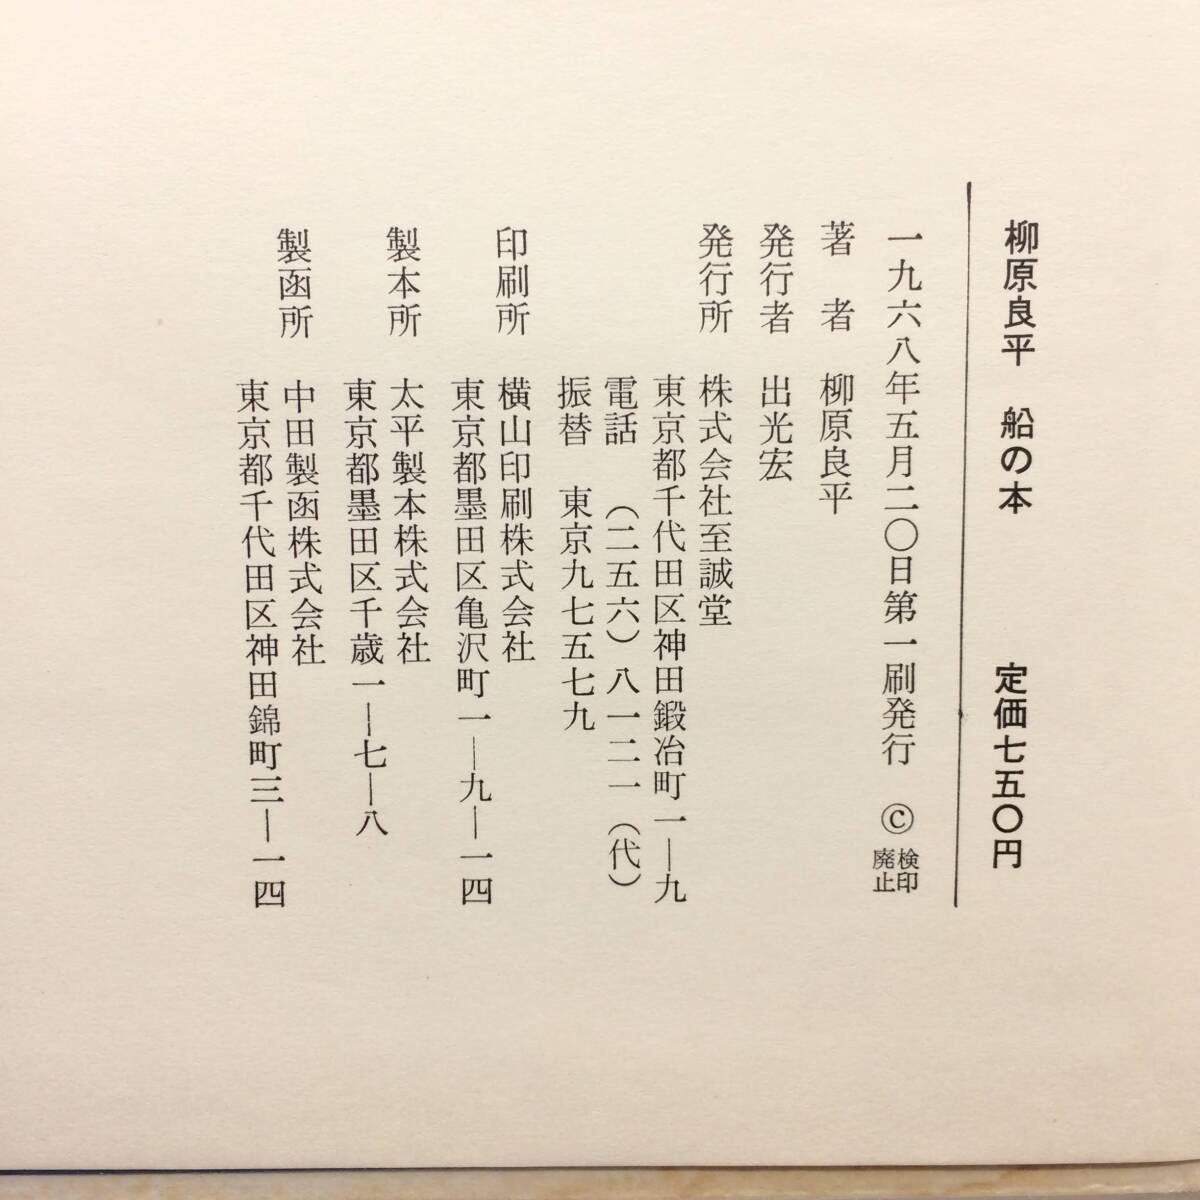 柳原良平 船の本 定価七五〇円
一九六八年五月二〇日第一刷発行 © 検印廃止
著者 柳原良平
発行者 出光宏
発行所 株式会社至誠堂
東京都千代田区神田鍛冶町一―九
電話 (二五六)八一二一(代)
振替 東京九七五七九
印刷所 横山印刷株式会社
東京都墨田区亀沢町一―九―一四
製本所 太平製本株式会社
東京都墨田区千歳一―七―八
製函所 中田製函株式会社
東京都千代田区神田錦町三―一四